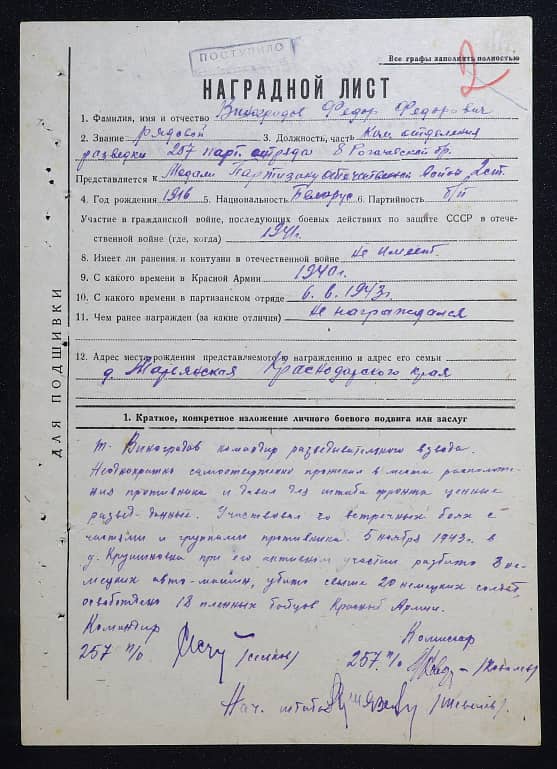 ПОСТУПИЛО
Все графы заполнять полностью
2
НАГРАДНОЙ ЛИСТ
1. Фамилия, имя и отчество Виноградов Федор Федорович
2. Звание рядовой 3. Должность, часть Ком. отделения
разведки 257 парт. отряда 8 Рогачевской бр.
Представляется к Медали Партизану Отечественной войны 2 ст.
4. Год рождения 1916 5. Национальность Белорус 6. Партийность б/п
Участие в гражданской войне, последующих боевых действиях по защите СССР в отече-
ственной войне (где, когда) 1941г.
8. Имеет ли ранения и контузии в отечественной войне не имеет
9. С какого времени в Красной Армии 1940г.
10. С какого времени в партизанском отряде 6.8.1943г.
11. Чем ранее награжден (за какие отличия) не награждался
12. Адрес места рождения представляемого к награждению и адрес его семьи
Краснодарского края
ДЛЯ ПОДШИВКИ
1. Краткое, конкретное изложение личного боевого подвига или заслуг
т. Виноградов командир разведывательного взвода.
Неоднократно самоотверженно проникал в места расположе-
ния противника и давал для штаба фронта ценные
развед-данные. Участвовал во встречных боях с
частями и группами противника. 5 ноября 1943г. в
д. Крушиновка при его активном участии разбито 3 не-
мецких авто-машин, убито свыше 20 немецких солдат,
освобождено 18 пленных бойцов Красной Армии.
Командир Комиссар
257 п/о 257 п/о
Нач. штаба